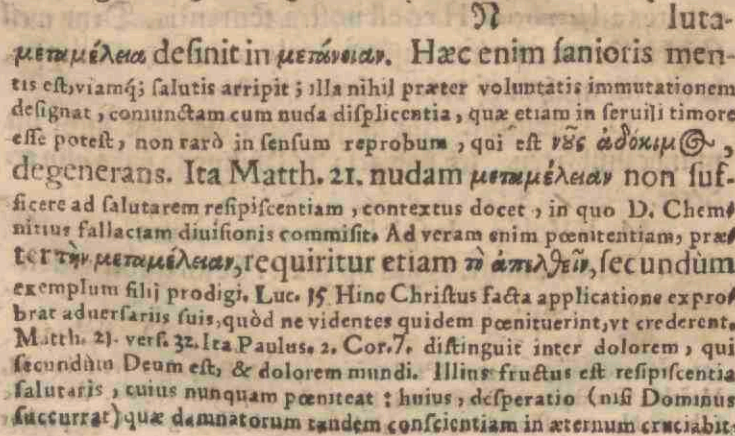 N luta-
μεταμέλεια definit in μετάνοιαν. Hæc enim ſanioris men-
tis eſt, viamq́; ſalutis arripit; illa nihil præter voluntatis immutationem
deſignat, coniunctam cum nuda diſplicentia, quæ etiam in ſeruili timore
eſſe poteſt, non rarò in ſenſum reprobum, qui eſt νοῦς ἀδόκιμος,
degenerans. Ita Matth. 21. nudam μεταμέλειαν non ſuf-
ficere ad ſalutarem reſipiſcentiam, contextus docet, in quo D. Chem-
nitius fallaciam diuiſionis commiſit. Ad veram enim pœnitentiam, præ-
ter τὴν μεταμέλειαν, requiritur etiam τὸ ἀπελθεῖν, ſecundùm
exemplum filij prodigi. Luc. 15 Hinc Chriſtus facta applicatione expro-
brat aduerſariis ſuis, quòd ne videntes quidem pœnituerint, vt crederent.
Matth. 21. verſ. 32. Ita Paulus. 2. Cor. 7. diſtinguit inter dolorem, qui
ſecundùm Deum eſt, & dolorem mundi. Illius fructus eſt reſipiſcentia
ſalutaris, cuius nunquam pœniteat: huius, deſperatio (niſi Dominus
ſuccurrat) quæ damnatorum tandem conſcientiam in æternum cruciabit.